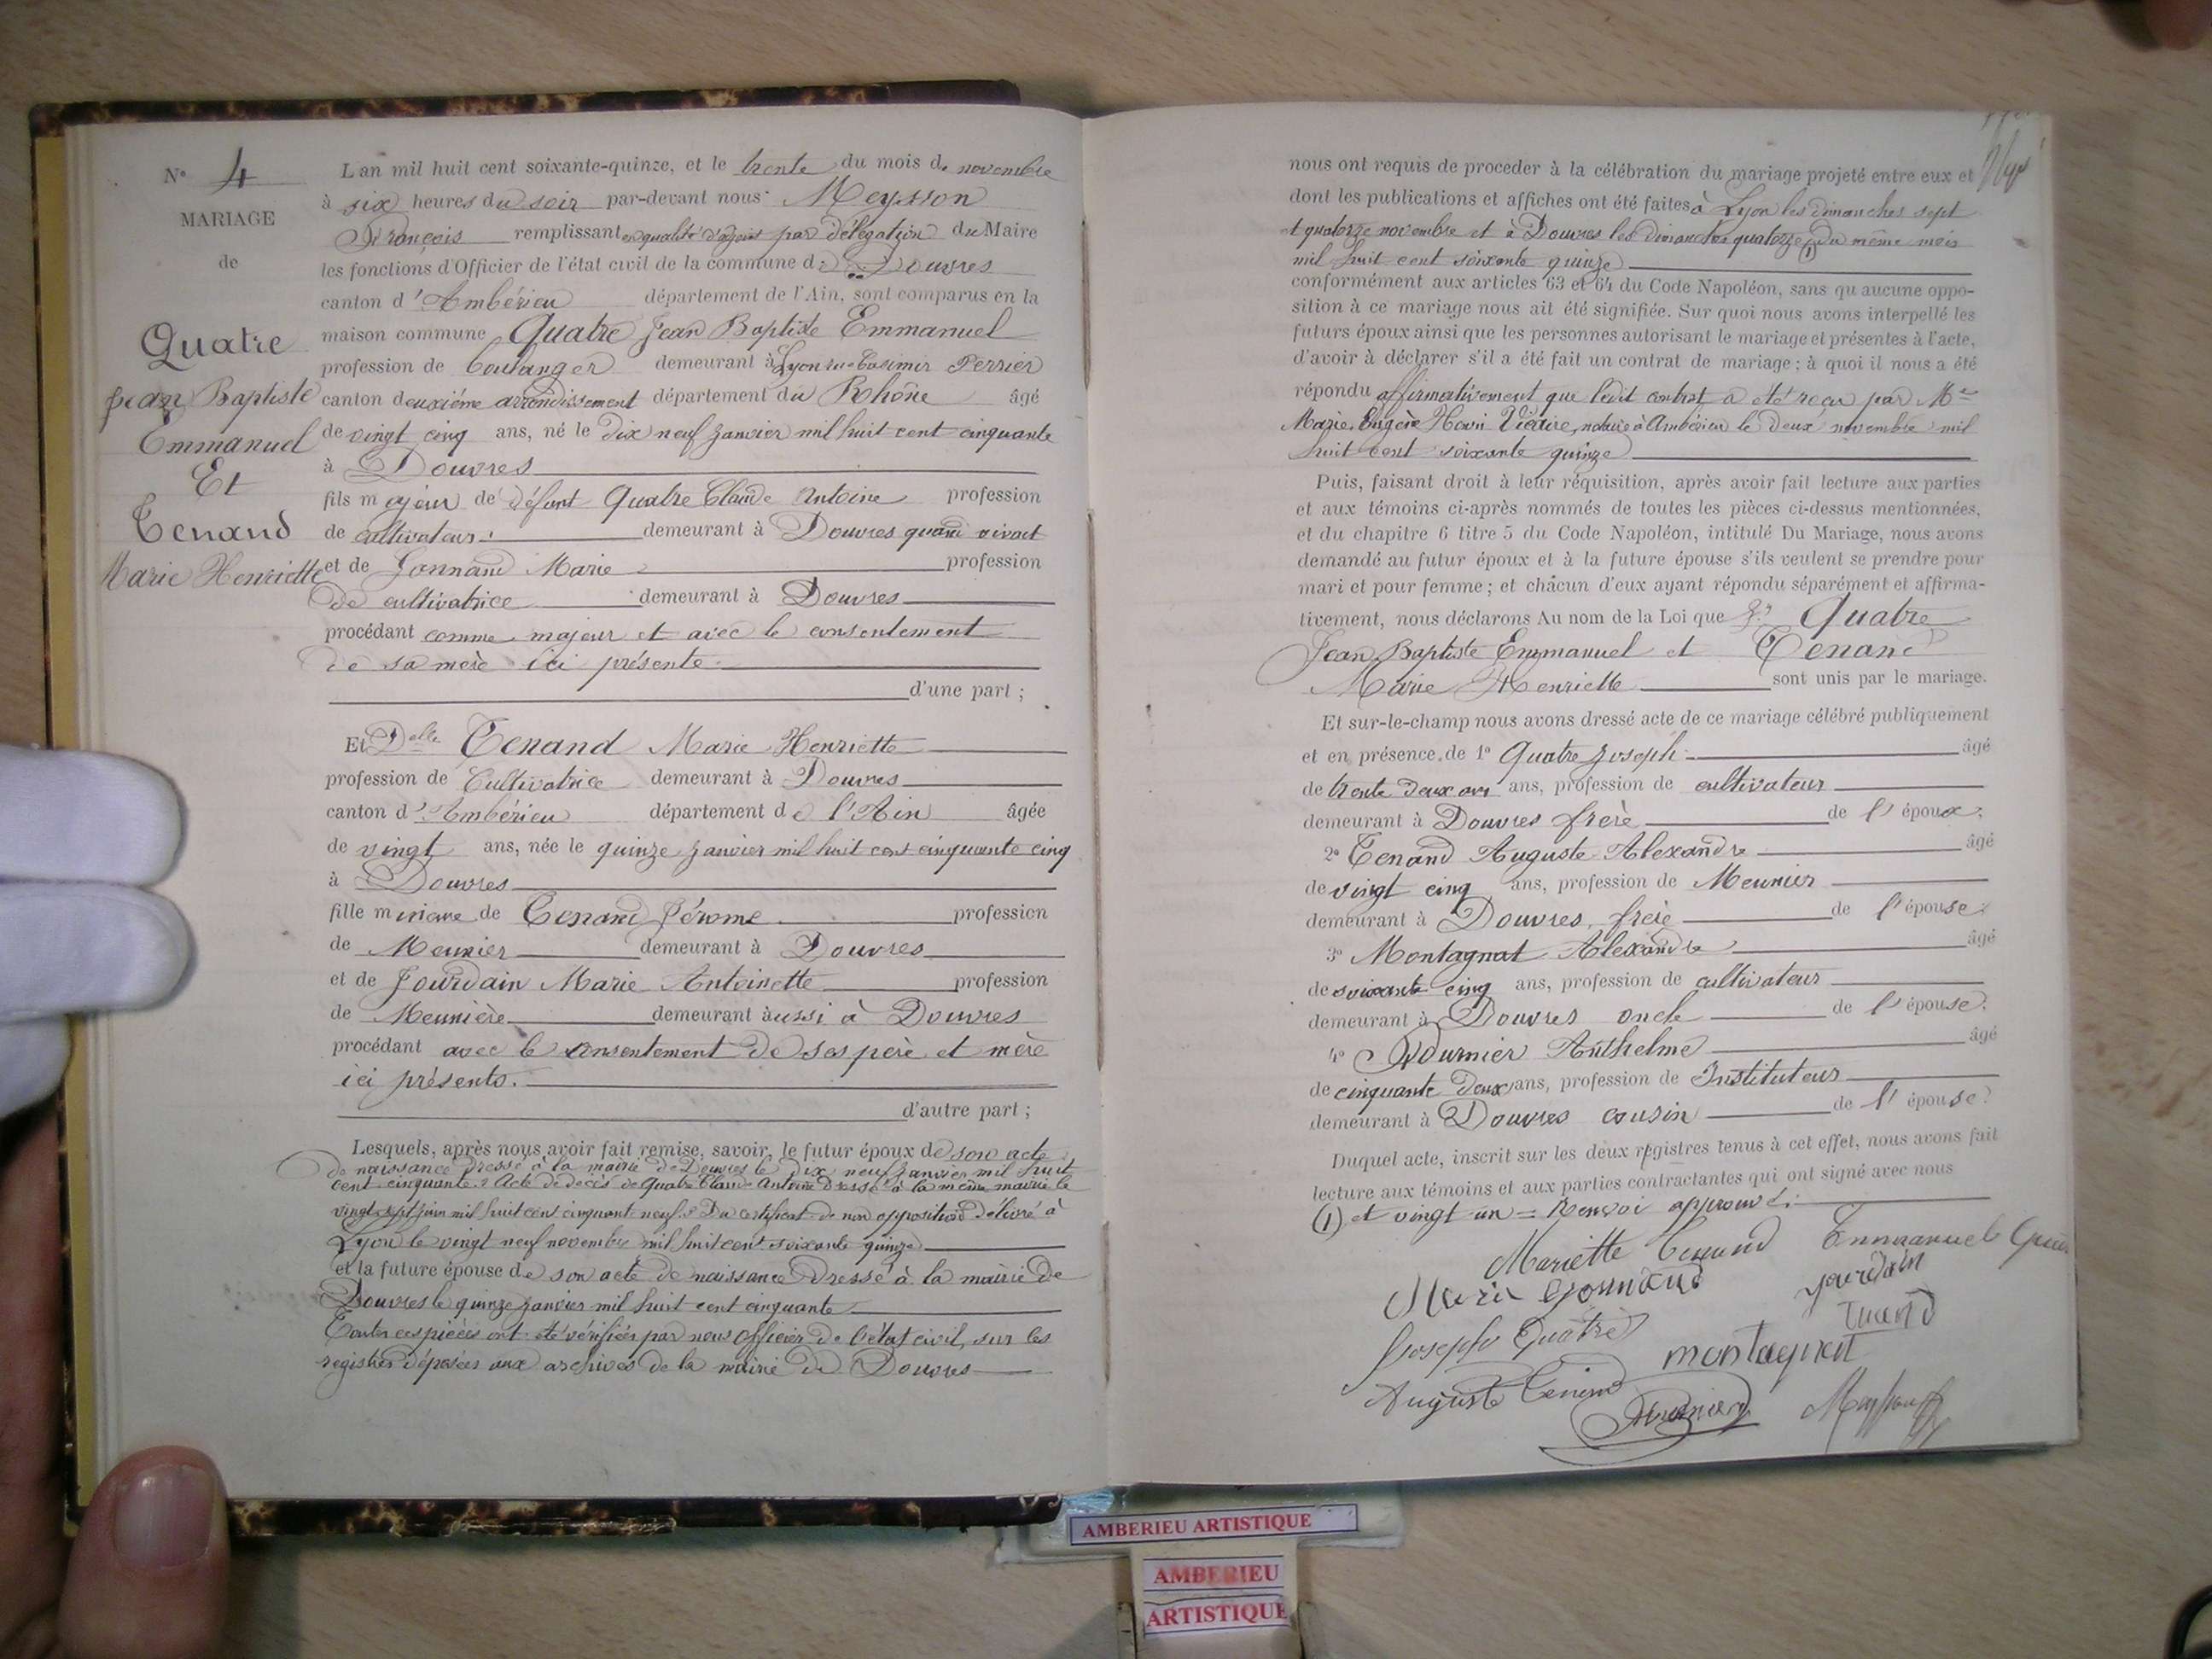 N° 4
MARIAGE
de
Quatre
Jean Baptiste
Emmanuel
Et
Tenand
Marie Henriette
L'an mil huit cent soixante-quinze, et le trente du mois de novembre
à six heures du soir par-devant nous Meysson
François remplissant en qualité d'adjoint par délégation du Maire
les fonctions d'Officier de l'état civil de la commune de Douvres
canton d'Ambérieu département de l'Ain, sont comparus en la
maison commune Quatre Jean Baptiste Emmanuel
profession de boulanger demeurant à Lyon rue Casimir Perrier
canton deuxième arrondissement département du Rhône âgé
de vingt cinq ans, né le dix neuf janvier mil huit cent cinquante
à Douvres
fils majeur de défunt Quatre Claude Antoine profession
de cultivateur demeurant à Douvres quand vivait
et de Jonnand Marie profession
de cultivatrice demeurant à Douvres
procédant comme majeur et avec le consentement
de sa mère ici présente.
d'une part ;
Et Delle Tenand Marie Henriette
profession de Cultivatrice demeurant à Douvres
canton d'Ambérieu département de l'Ain âgée
de vingt ans, née le quinze janvier mil huit cent cinquante cinq
à Douvres
fille mineure de Tenand Jérome profession
de Meunier demeurant à Douvres
et de Jourdain Marie Antoinette profession
de Meunière demeurant aussi à Douvres
procédant avec le consentement de ses père et mère
ici présents.
d'autre part ;
Lesquels, après nous avoir fait remise, savoir, le futur époux de son acte
de naissance dressé à la mairie de Douvres le dix neuf janvier mil huit
cent cinquante. Acte de décès de Quatre Claude Antoine dressé à la même mairie le
vingt sept juin mil huit cent cinquante neuf. Du certificat de non opposition délivré à
Lyon le vingt neuf novembre mil huit cent soixante quinze
et la future épouse de son acte de naissance dressé à la mairie de
Douvres le quinze janvier mil huit cent cinquante
Toutes ces pièces ont été vérifiées par nous officier de l'état civil, sur les
registres déposées aux archives de la mairie de Douvres
nous ont requis de proceder à la célébration du mariage projeté entre eux et
dont les publications et affiches ont été faites à Lyon les dimanches sept
et quatorze novembre et à Douvres les dimanches quatorze (1) du même mois
mil huit cent soixante quinze
conformément aux articles 63 et 64 du Code Napoléon, sans qu'aucune oppo-
sition à ce mariage nous ait été signifiée. Sur quoi nous avons interpellé les
futurs époux ainsi que les personnes autorisant le mariage et présentes à l'acte,
d'avoir à déclarer s'il a été fait un contrat de mariage ; à quoi il nous a été
répondu affirmativement que ledit contrat a été reçu par Me
Marie Eugène Henri Vicaire, notaire à Ambérieu le deux novembre mil
huit cent soixante quinze
Puis, faisant droit à leur réquisition, après avoir fait lecture aux parties
et aux témoins ci-après nommés de toutes les pièces ci-dessus mentionnées,
et du chapitre 6 titre 5 du Code Napoléon, intitulé Du Mariage, nous avons
demandé au futur époux et à la future épouse s'ils veulent se prendre pour
mari et pour femme ; et châcun d'eux ayant répondu séparément et affirma-
tivement, nous déclarons Au nom de la Loi que Quatre
Jean Baptiste Emmanuel et Tenand
Marie Henriette sont unis par le mariage.
Et sur-le-champ nous avons dressé acte de ce mariage célébré publiquement
et en présence de 1° Quatre Joseph âgé
de trente deux ans ans, profession de cultivateur
demeurant à Douvres frère de l'époux.
2° Tenand Auguste Alexandre âgé
de vingt cinq ans, profession de Meunier
demeurant à Douvres, frère de l'épouse.
3° Montagnat Alexandre âgé
de soixante cinq ans, profession de cultivateur
demeurant à Douvres oncle de l'épouse.
4° Fournier Anthelme âgé
de cinquante deux ans, profession de Instituteur
demeurant à Douvres cousin de l'épouse.
Duquel acte, inscrit sur les deux registres tenus à cet effet, nous avons fait
lecture aux témoins et aux parties contractantes qui ont signé avec nous
(1) et vingt un = Renvoi approuvé.
Mariette Tenand Emmanuel
Marie Jonnand Jourdain
Joseph Quatre Tenand
Montagnat
Auguste Tenand Fournier Meysson
AMBERIEU ARTISTIQUE
AMBERIEU
ARTISTIQUE